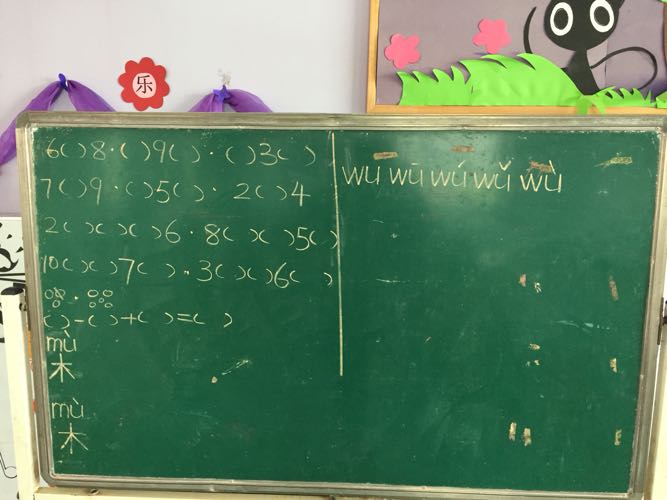 乐
6( )8·( )9( )·( )3( )
7( )9·( )5( )·2( )4
2( )( )( )6·8( )( )5( )
10( )( )7( )·3( )( )6( )
( )-( )+( )=( )
mù
木
mù
木
wu wū wú wǔ wù